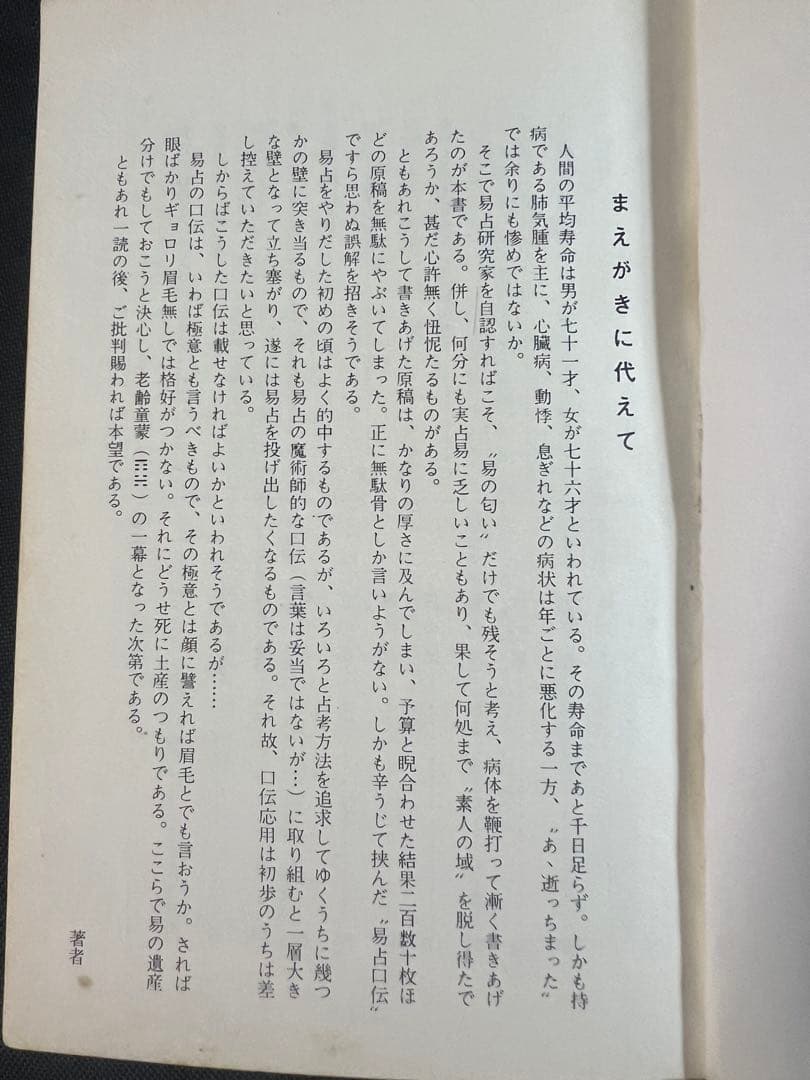 まえがきに代えて
人間の平均寿命は男が七十一才、女が七十六才といわれている。その寿命まであと千日足らず。しかも持
病である肺気腫を主に、心臓病、動悸、息ぎれなどの病状は年ごとに悪化する一方、〝あゝ逝っちまった〟
では余りにも惨めではないか。
そこで易占研究家を自認すればこそ、〝易の匂い〟だけでも残そうと考え、病体を鞭打って漸く書きあげ
たのが本書である。併し、何分にも実占易に乏しいこともあり、果して何処まで〝素人の域〟を脱し得たで
あろうか、甚だ心許無く忸怩たるものがある。
ともあれこうして書きあげた原稿は、かなりの厚さに及んでしまい、予算と睨合わせた結果二百数十枚ほ
どの原稿を無駄にやぶいてしまった。正に無駄骨としか言いようがない。しかも辛うじて挟んだ〝易占口伝〟
ですら思わぬ誤解を招きそうである。
易占をやりだした初めの頃はよく的中するものであるが、いろいろと占考方法を追求してゆくうちに幾つ
かの壁に突き当るもので、それも易占の魔術師的な口伝（言葉は妥当ではないが…）に取り組むと一層大き
な壁となって立ち塞がり、遂には易占を投げ出したくなるものである。それ故、口伝応用は初歩のうちは差
し控えていただきたいと思っている。
しからばこうした口伝は載せなければよいかといわれそうであるが……
易占の口伝は、いわば極意とも言うべきもので、その極意とは顔に譬えれば眉毛とでも言おうか。されば
眼ばかりギョロリ眉毛無しでは格好がつかない。それにどうせ死に土産のつもりである。ここらで易の遺産
分けでもしておこうと決心し、老齢童蒙（）の一幕となった次第である。
ともあれ一読の後、ご批判賜われば本望である。
著者